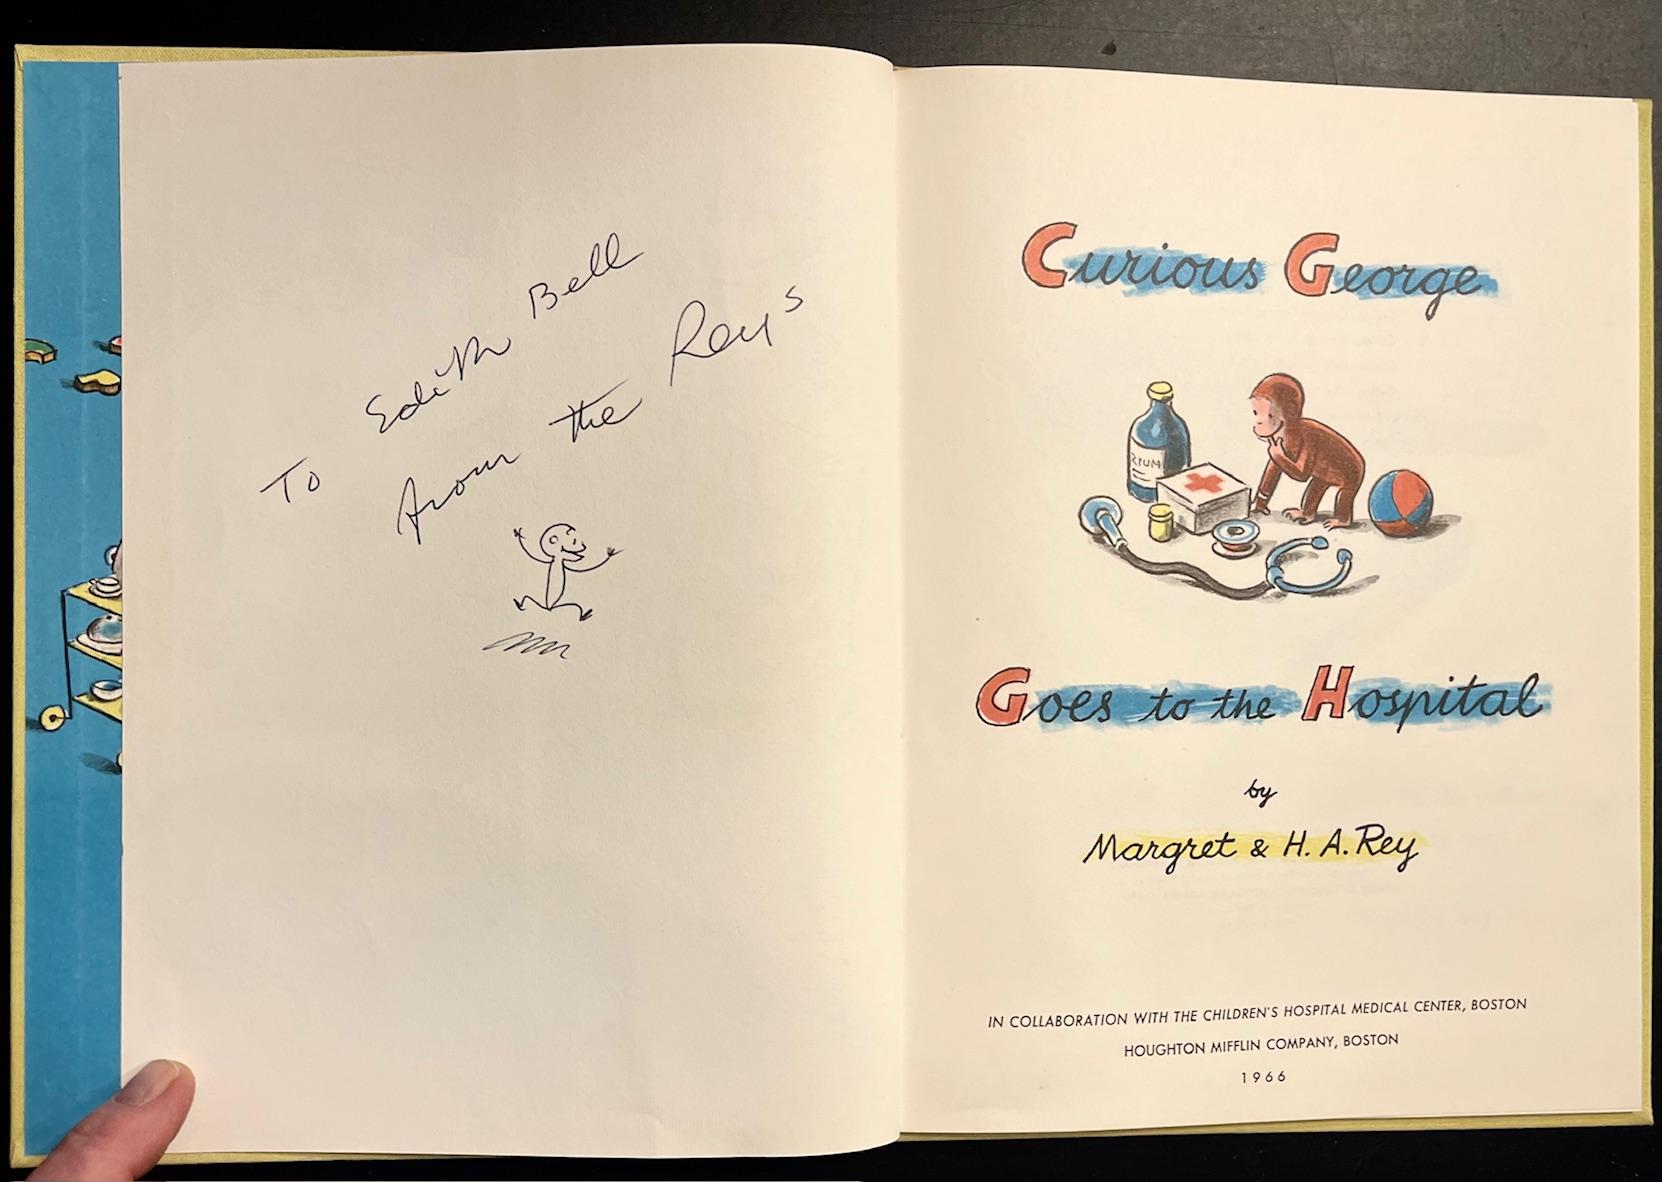 To Edith Bell
from the Reys
Curious George
RIUM
Goes to the Hospital
by
Margret & H. A. Rey
IN COLLABORATION WITH THE CHILDREN'S HOSPITAL MEDICAL CENTER, BOSTON
HOUGHTON MIFFLIN COMPANY, BOSTON
1966